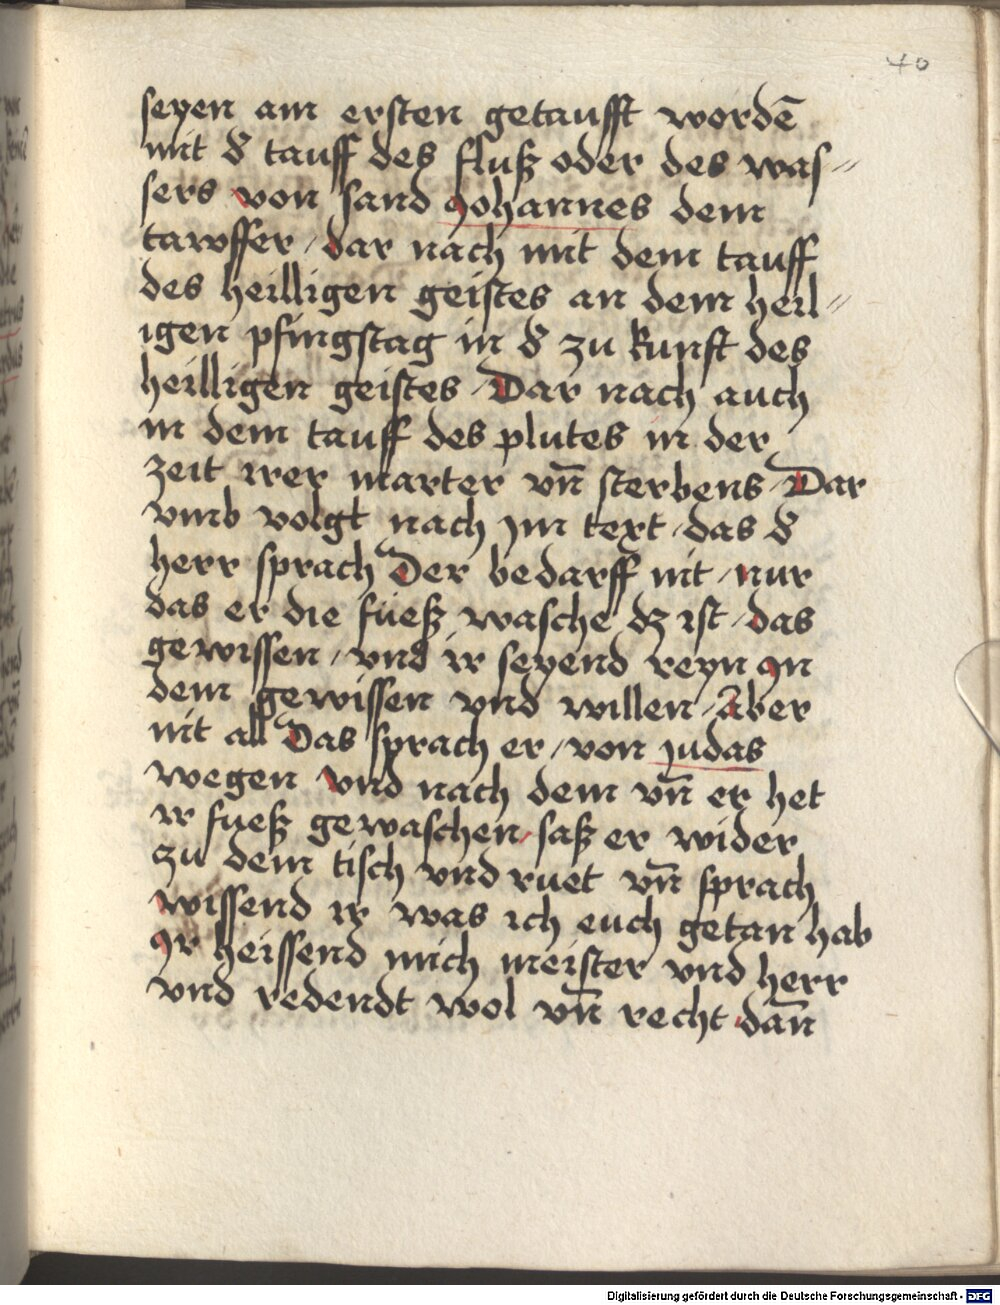 40
seyen am ersten getaufft wordē
mit d̕ tauff des fluß oder des was⸗
sers von sand Johannes dem
tawffer / dar nach mit dem tauff
des heilligen geistes an dem heil⸗
igen pfingstag in d̕ zu kunft des
heilligen geistes / Dar nach auch
in dem tauff des plutes in der
zeit irer marter vn̄ sterbens / Dar
vmb volgt nach jm text / das d̕
herr sprach Der bedarff nit / nur
das er die füeß wasche / dz ist / das
gewissen / vnd ir seyend reyn Jn
dem gewissen vnd willen / Aber
nit all Das sprach er / von judas
wegen vnd nach dem vn̄ er het
ir fueß gewaschen / saß er wider
zu dem tisch vnd ruet vn̄ sprach
wissend ir was ich euch getan hab
Jr heissend mich meister vnd herr
vnd redendt wol vn̄ recht dan̄
Digitalisierung gefördert durch die Deutsche Forschungsgemeinschaft - DFG